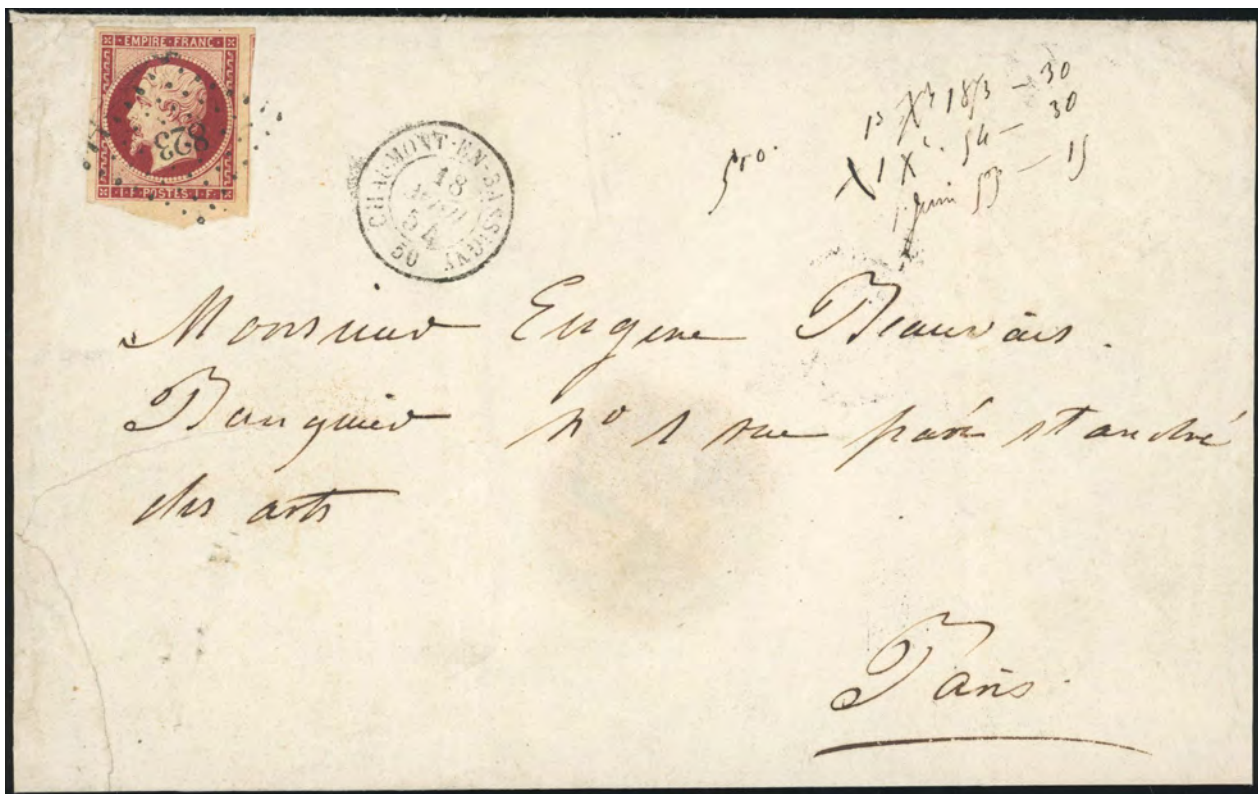 EMPIRE·FRANC·
823
1·F·POSTES·1·F·
CHAUMONT-EN-BASSIGNY
18
54
50
30
30
1 Juin 53 — 15
Monsieur Eugene Beauvais.
Banquier no 1 rue pavée st andré
des arts
Paris.